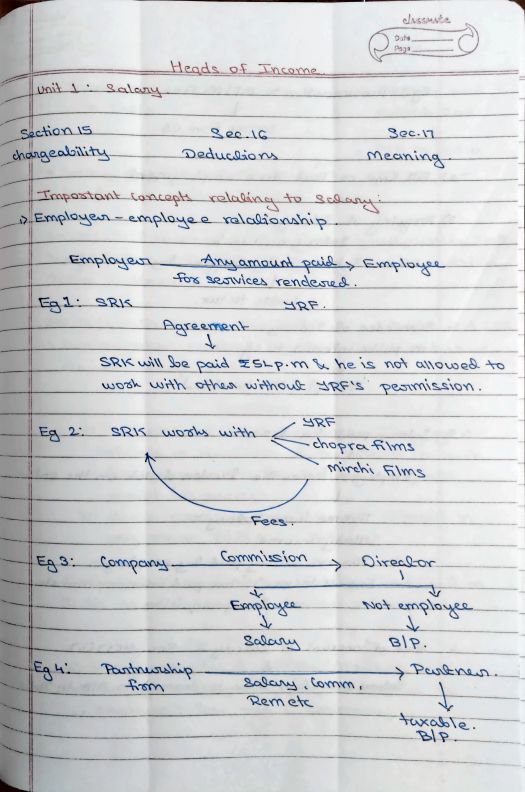 classmate
Date
Page
Heads of Income.
Unit 1: Salary.
Section 15 Sec.16 Sec.17
chargeability Deductions Meaning.
Important concepts relating to Salary:
Employer-employee relationship.
Employer Any amount paid Employee
for services rendered.
Eg 1: SRK YRF.
Agreement
SRK will be paid ₹5L p.m & he is not allowed to
work with other without YRF's permission.
YRF
Eg 2: SRK works with chopra films
mirchi films
Fees.
Eg 3: Company Commission Director
Employee Not employee
Salary B/P.
Eg 4: Partnership Partner.
firm Salary, Comm,
Rem etc
taxable.
B/P.